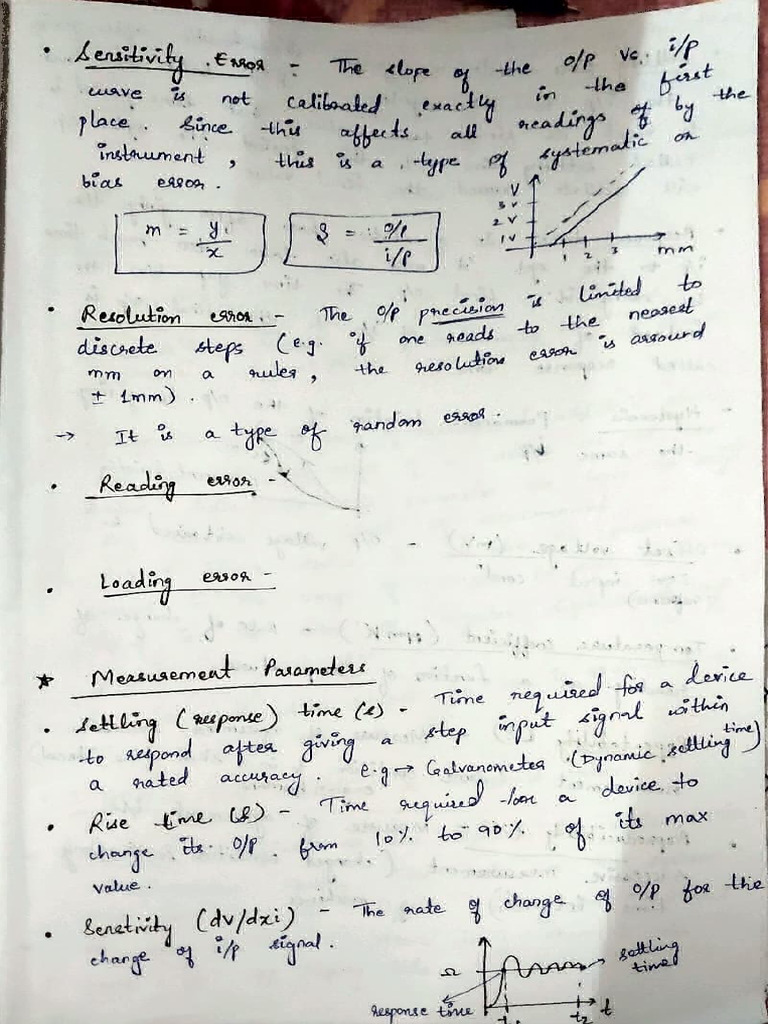 • Sensitivity Error - The slope of the o/p vs. i/p
curve is not calibrated exactly in the first
place. Since this affects all readings of by the
instrument, this is a type of systematic or
bias error.
m = y/x
S = o/p / i/p
V
3 V
2 V
1 V
1 2 3 mm
• Resolution error. - The o/p precision is limited to
discrete steps (e.g. if one reads to the nearest
mm on a ruler, the resolution error is arround
± 1mm).
→ It is a type of random error.
• Reading error -
• Loading error -
* Measurement Parameters
• Settling (response) time (s) - Time required for a device
to respond after giving a step input signal within
a rated accuracy. e.g → Galvanometer (Dynamic settling time)
• Rise time (s) - Time required for a device to
change its o/p from 10% to 90% of its max
value.
• Sensetivity (dv/dxi) - The rate of change of o/p for the
change of i/p signal.
Ω
settling
time
response time
t1 t2 t